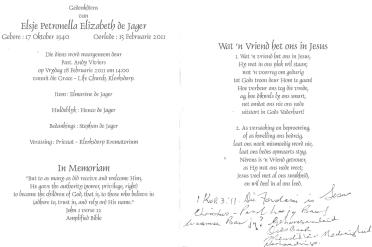 Gedenkdiens
van
Elsje Petronella Elizabeth de Jager
Gebore : 17 Oktober 1940 Oorlede : 15 Februarie 2011
Die diens word waargeneem deur
Past. Andy Viviers
op Vrydag 18 Februarie 2011 om 14:00
vanuit die Grace - Life Church, Klerksdorp
Item: Elmarine de Jager
Huldeblyk : Hanco de Jager
Bedankings : Stephan de Jager
Verassing: Privaat - Klerksdorp Krematorium
In Memoriam
"But to as many as did receive and welcome Him,
He gave the authority (power, privilege, right)
to become the children of God, that is, to those who believe in
(adhere to, trust in, and rely on) His name."
John 1 verse 12
Amplified Bible
Wat 'n Vriend het ons in Jesus
1. Wat 'n Vriend het ons in Jesus,
Hy wat in ons plek wil staan;
wat 'n voorreg om gedurig
tot God's troon deur Hom te gaan!
Hoe verbeur ons tog die vrede,
ag hoe dikwels ly ons smart,
net omdat ons nie ons node
uitstort in God's Vaderhart!
2. As versoeking en beproewing
of as kwelling ons bedreig,
laat ons nooit mismoedig word nie,
laat ons biddend opwaarts styg.
Nêrens is 'n Vriend getrouer,
as Hy wat ons node weet;
Jesus voel met al ons swakheid,
en wil deel in al ons leed.
1 Kor 3:11: Die Fondasie is Jesus